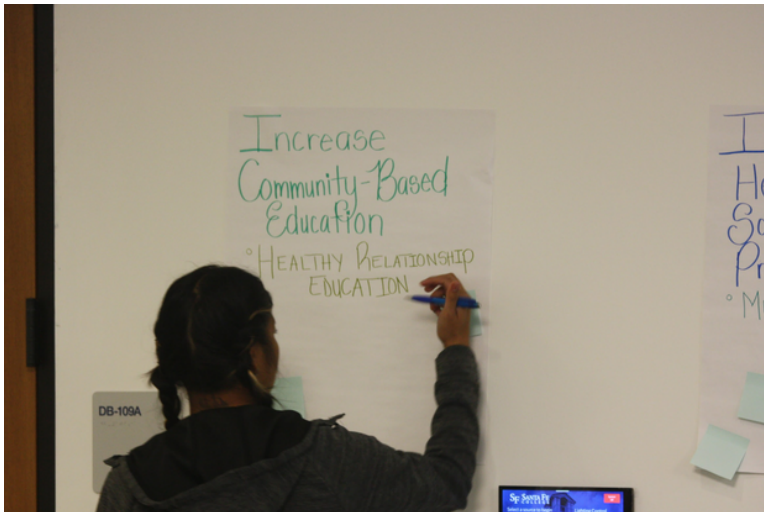 Increase
Community-Based
Education
° HEALTHY RELATIONSHIP
EDUCATION
I
H
S
Pr
° M
DB-109A
SF SANTA FE
COLLEGE